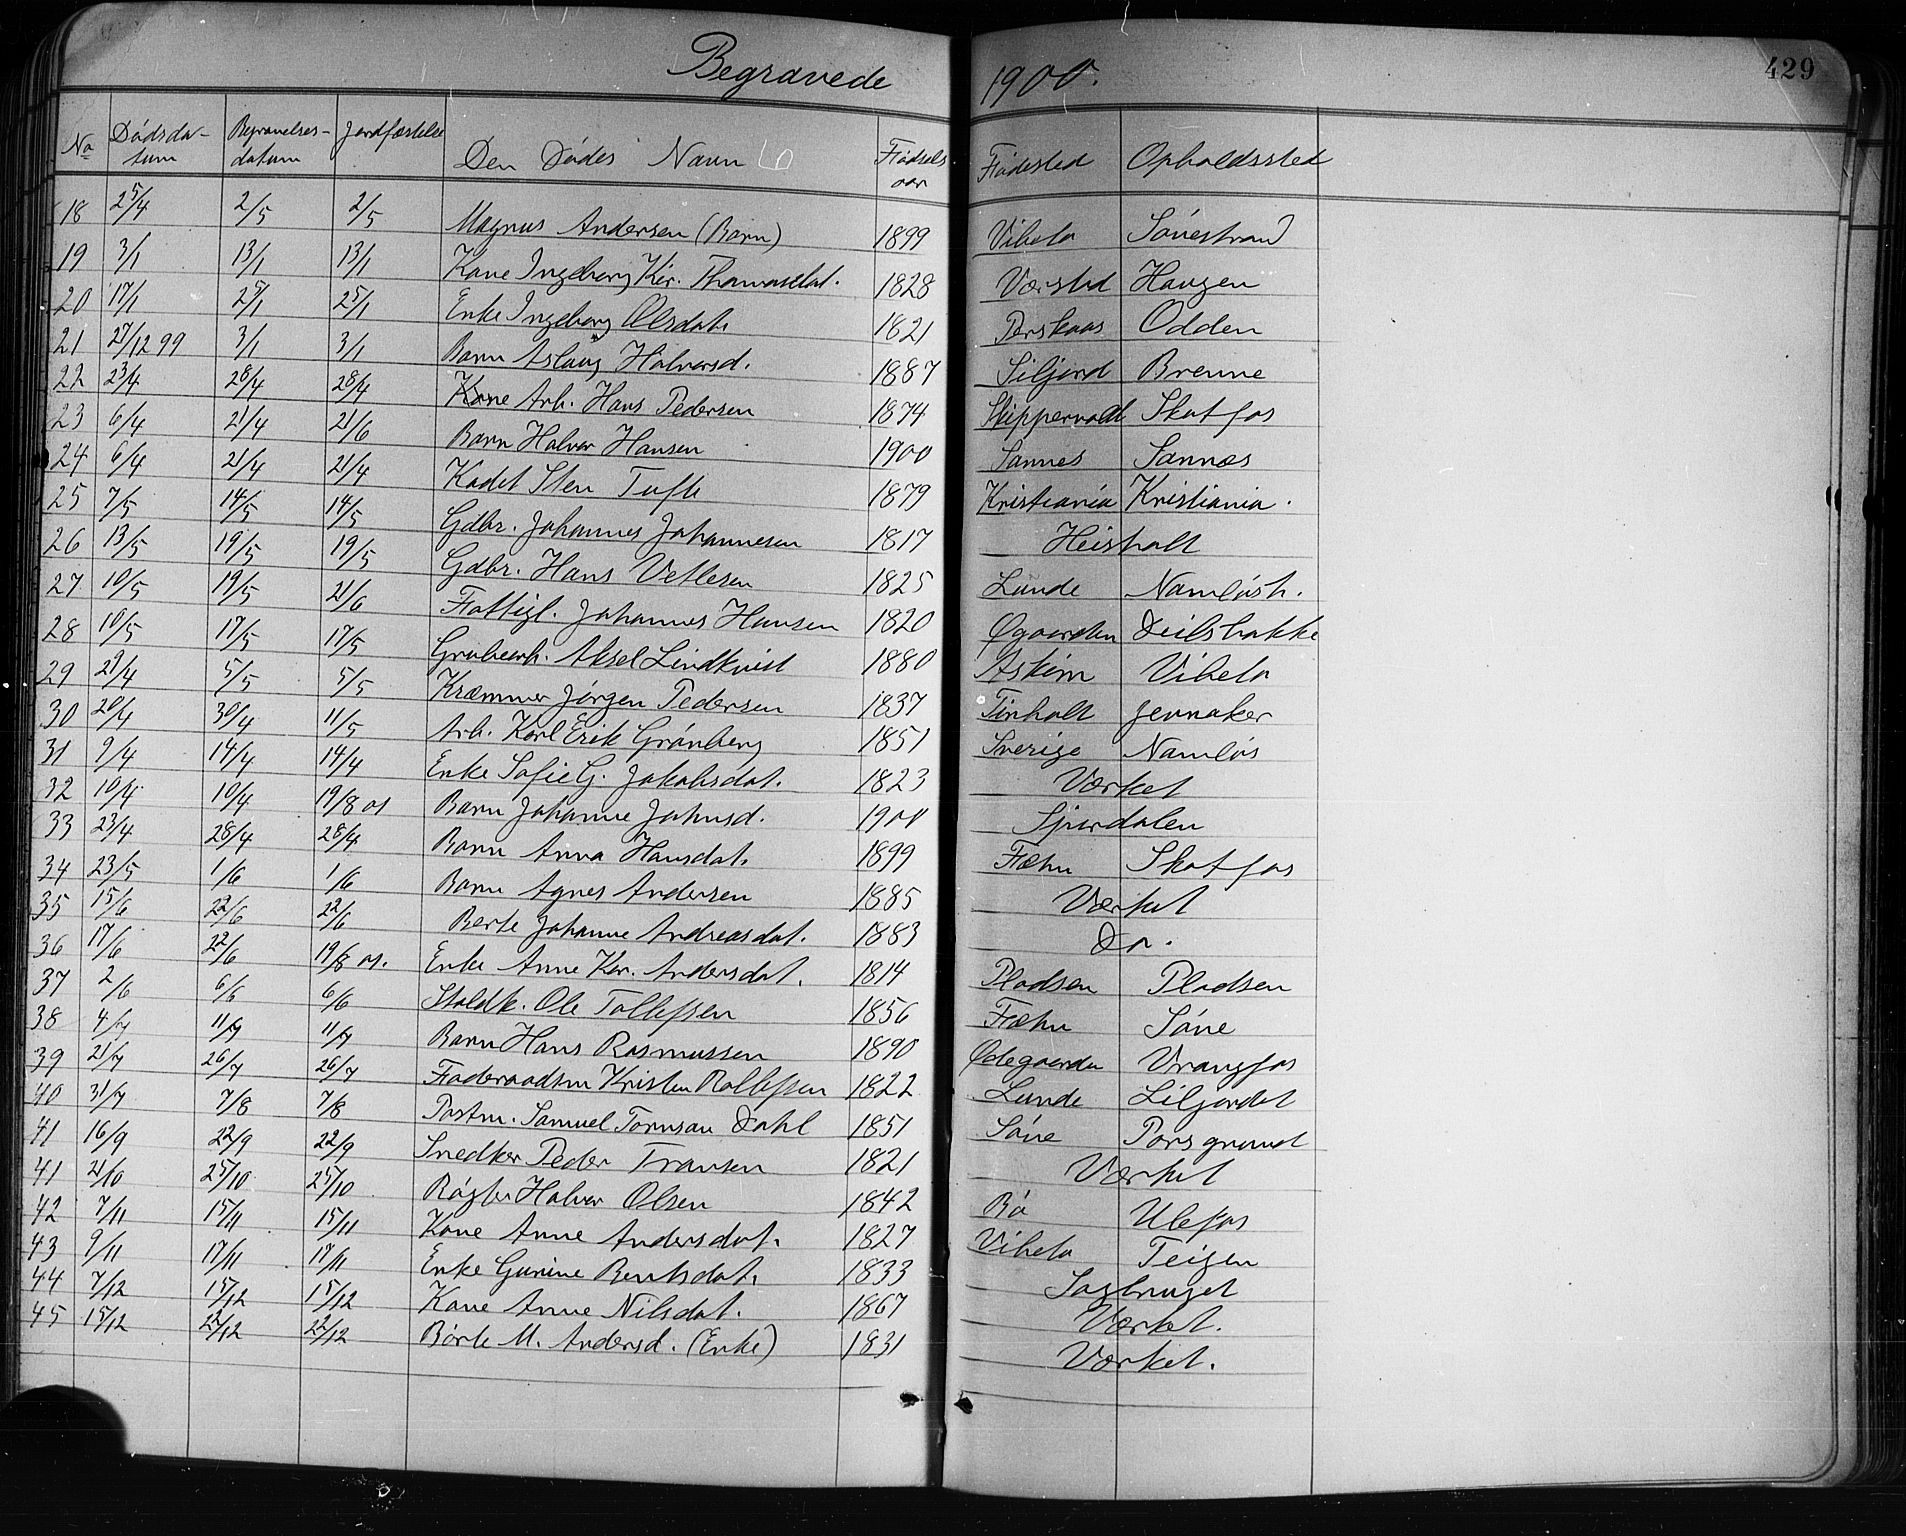 Begravede 1900. 429
No Dødsdatum Begravelsesdatum Jordfæstelse Den Dødes Navn Fødselsaar Fødested Opholdssted
18 25/4 2/5 2/5 Magnus Andersen (Barn) 1899 Vibeto Sónestrand
19 3/1 13/1 13/1 Kone Ingeborg Kir. Thomasdat. 1828 Værsted Haugen
20 17/1 25/1 25/1 Enke Ingeborg Olsdat. 1821 Perskaas Odden
21 27/12 99 3/1 3/1 Barn Aslaug Halvorsd. 1887 Siljord Brenne
22 23/4 28/4 28/4 Arb. Hans Pedersen 1874 Skippervold Skotfos
23 6/4 21/4 21/6 Barn Halvor Hansen 1900 Sannes Sannæs
24 6/4 21/4 21/4 Kadet Sten Tufte 1879 Kristiania Kristiania.
25 7/5 14/5 14/5 Gdbr. Johannes Johannesen 1817 Heisholt
26 13/5 19/5 19/5 Gdbr. Hans Vetlesen 1825 Lunde Namlósh.
27 10/5 19/5 21/6 Fattigl. Johannes Hansen 1820 Øgaarden Deilshakke
28 10/5 17/5 17/5 Grubearb. Aksel Lindkvist 1880 Askim Vibeto
29 29/4 5/5 5/5 Kræmmer Jørgen Pedersen 1837 Tinholt Jernaker
30 20/4 30/4 11/5 Arb. Karl Erik Grónberg 1851 Sverige Namlós
31 9/4 14/4 14/4 Enke Sofie G. Jakobsdat. 1823 Værket
32 10/4 10/4 19/8 01 Barn Johanne Johnsd. 1900 Sjurdalen
33 23/4 28/4 28/4 Barn Anna Hansdat. 1899 Fæhn Skotfos
34 23/5 1/6 1/6 Barn Agnes Andersen 1885 Værket
35 15/6 22/6 22/6 Berte Johanne Andreasdat. 1883 Do.
36 17/6 22/6 19/8 01. Enke Anne Kir. Andersdat. 1814 Pladsen Pladsen
37 2/6 6/6 6/6 Staldk. Ole Tollefsen 1856 Fæhn Sóne
38 4/7 11/7 11/7 Barn Hans Rasmussen 1890 Ødegaarden Vrangfos
39 21/7 26/7 26/7 Føderaadsm Kristen Rollefsen 1822 Lunde Liljordet
40 31/7 7/8 7/8 Postm. Samuel Tomson Dahl 1851 Sóne Porsgrund
41 16/9 22/9 22/9 Snedker Peder Transen 1821 Værket
41 21/10 25/10 25/10 Røgter Halvor Olsen 1842 Bø Ulefos
42 7/11 15/11 15/11 Kone Anne Andersdat. 1827 Vibeto Teigen
43 9/11 17/11 17/11 Enke Gunine Bentsdat. 1833 Sagbruget
44 7/12 15/12 15/12 Kone Anne Nilsdat. 1867 Værket.
45 15/12 22/12 22/12 Børte M. Andersd. (Enke) 1831 Værket.